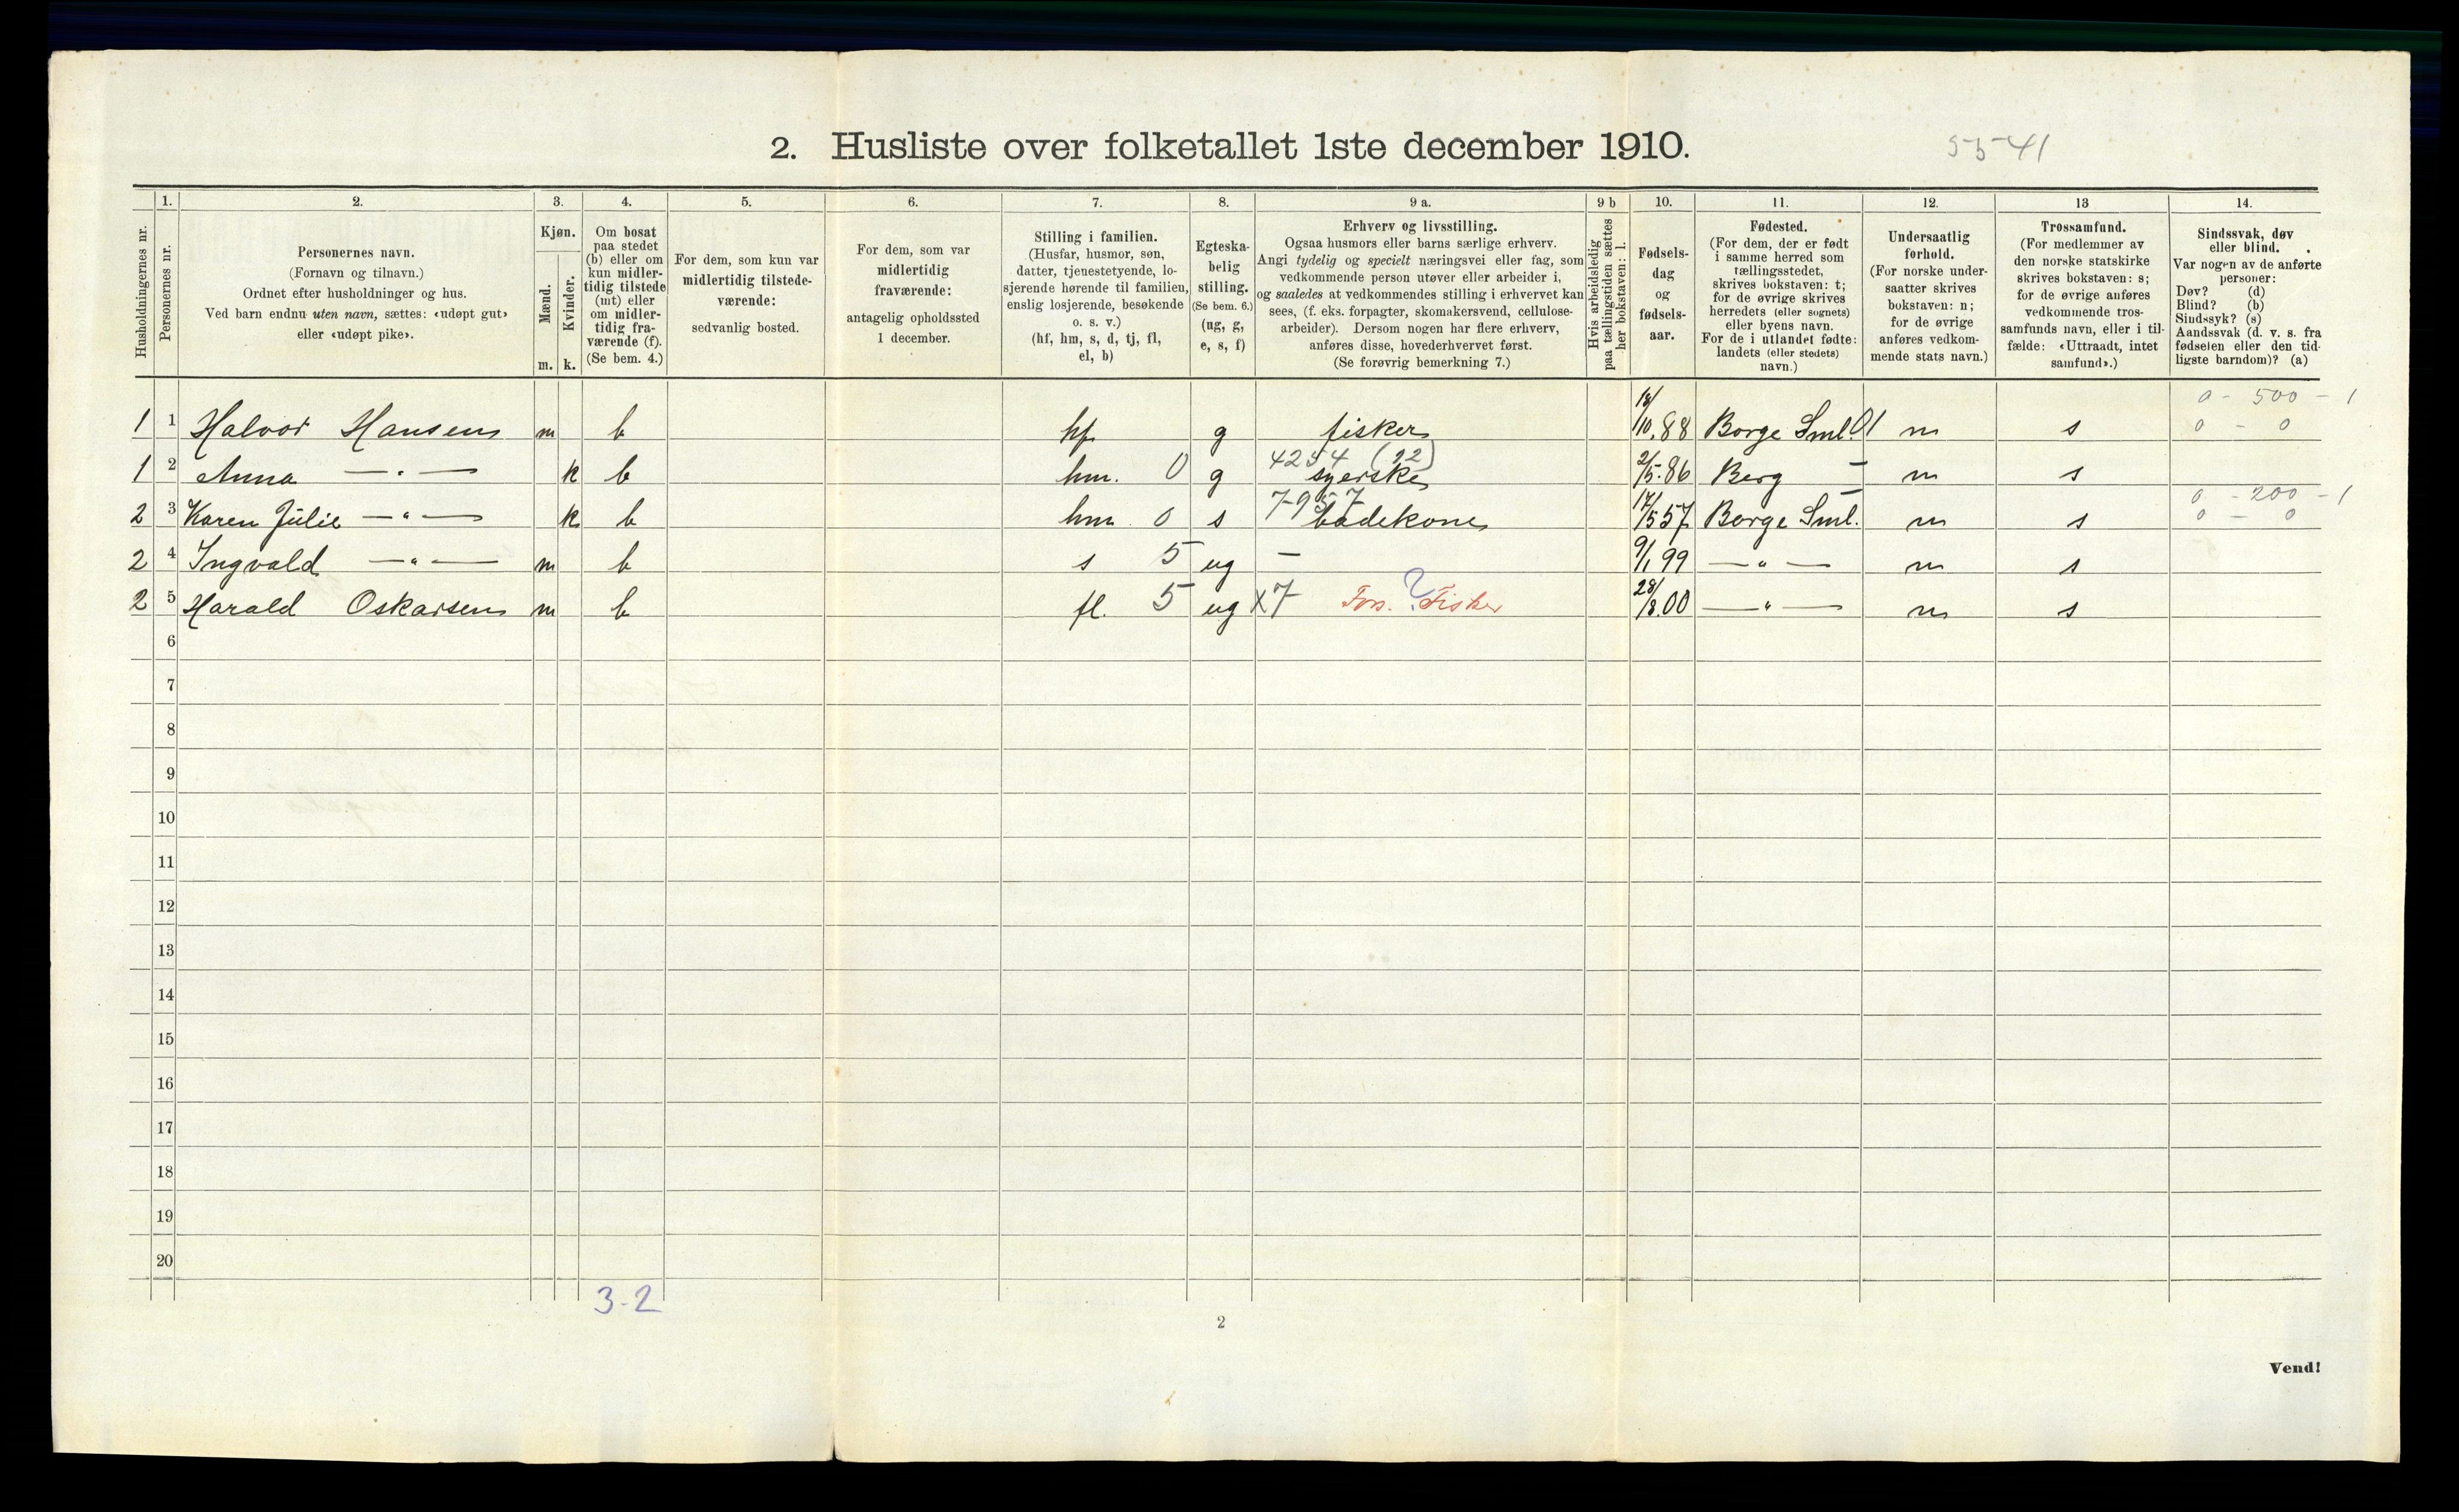 2. Husliste over folketallet 1ste december 1910.
55-41
Husholdningernes nr.
1.
Personernes nr.
2.
Personernes navn.
(Fornavn og tilnavn.)
Ordnet efter husholdninger og hus.
Ved barn endnu uten navn, sættes: «udøpt gut»
eller «udøpt pike».
3.
Kjøn.
Mænd.
m.
Kvinder.
k.
4.
Om bosat
paa stedet
(b) eller om
kun midler-
tidig tilstede
(mt) eller
om midler-
tidig fra-
værende (f).
(Se bem. 4.)
5.
For dem, som kun var
midlertidig tilstede-
værende:
sedvanlig bosted.
6.
For dem, som var
midlertidig
fraværende:
antagelig opholdssted
1 december.
7.
Stilling i familien.
(Husfar, husmor, søn,
datter, tjenestetyende, lo-
sjerende hørende til familien,
enslig losjerende, besøkende
o. s. v.)
(hf, hm, s, d, tj, fl,
el, b)
8.
Egteska-
belig
stilling.
(Se bem. 6.)
(ug, g,
e, s, f)
9 a.
Erhverv og livsstilling.
Ogsaa husmors eller barns særlige erhverv.
Angi tydelig og specielt næringsvei eller fag, som
vedkommende person utøver eller arbeider i,
og saaledes at vedkommendes stilling i erhvervet kan
sees, (f. eks. forpagter, skomakersvend, cellulose-
arbeider). Dersom nogen har flere erhverv,
anføres disse, hovederhvervet først.
(Se forøvrig bemerkning 7.)
9 b
Hvis arbeidsledig
paa tællingstiden sættes
her bokstaven: l.
10.
Fødsels-
dag
og
fødsels-
aar.
11.
Fødested.
(For dem, der er født
i samme herred som
tællingsstedet,
skrives bokstaven: t;
for de øvrige skrives
herredets (eller sognets)
eller byens navn.
For de i utlandet fødte:
landets (eller stedets)
navn.)
12.
Undersaatlig
forhold.
(For norske under-
saatter skrives
bokstaven: n;
for de øvrige
anføres vedkom-
mende stats navn.)
13
Trossamfund.
(For medlemmer av
den norske statskirke
skrives bokstaven: s;
for de øvrige anføres
vedkommende tros-
samfunds navn, eller i til-
fælde: «Uttraadt, intet
samfund».)
14.
Sindssvak, døv
eller blind.
Var nogen av de anførte
personer:
Døv? (d)
Blind? (b)
Sindssyk? (s)
Aandssvak (d. v. s. fra
fødselen eller den tid-
ligste barndom)? (a)
0 - 500 - 1
1 1 Halvor Hansen m b hf g fisker 18/10.88 Borge Sml. 01 n s 0 - 0
4254 (12)
1 2 Anna —"— k b hm. 0 g syerske 2/5.86 Berg — n s
7957 0 - 200 - 1
2 3 Karen Julie —"— k b hm 0 s badekone 17/5 57 Borge Sml. n s 0 - 0
2 4 Ingvald —"— m b s 5 ug — 9/1 99 —"— n s
2 5 Harald Oskarsen m b fl. 5 ug x7 Fors. ? Fisker 28/8.00 —"— n s
6
7
8
9
10
11
12
13
14
15
16
17
18
19
20
3-2
2
Vend!